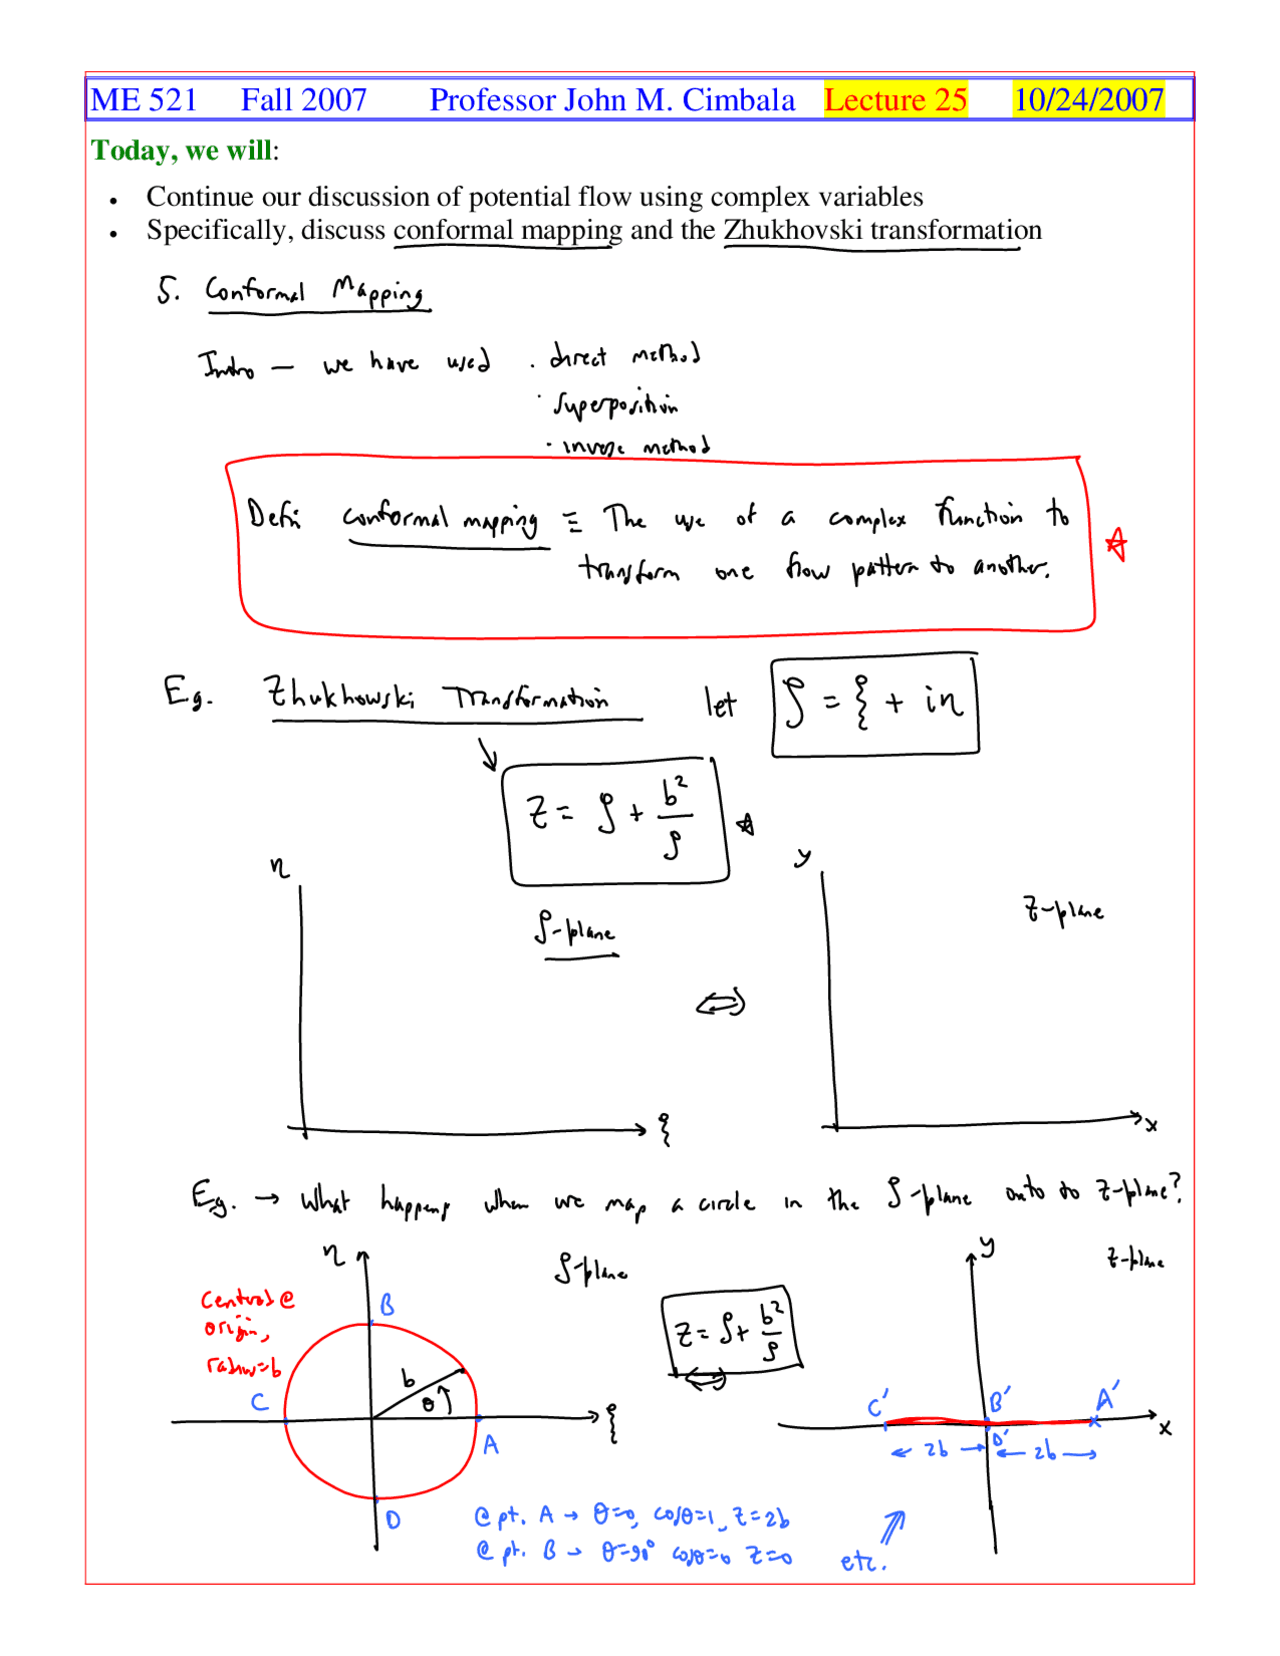 ME 521 Fall 2007 Professor John M. Cimbala Lecture 25 10/24/2007
Today, we will:
• Continue our discussion of potential flow using complex variables
• Specifically, discuss conformal mapping and the Zhukhovski transformation
5. Conformal Mapping
Intro — we have used • direct method
• superposition
• inverse method
Defn conformal mapping ≡ The use of a complex function to
transform one flow pattern to another.
E.g. Zhukhowski Transformation let ζ = ξ + iη
z = ζ + b²/ζ
η y
ζ-plane z-plane
⇔
ξ x
E.g. → What happens when we map a circle in the ζ-plane onto to z-plane?
η ζ-plane y z-plane
Centered @
origin,
radius=b
B
z = ζ + b²/ζ
⇔
b
θ
C A ξ
C' B' A' x
D'
← 2b → ← 2b →
D
@ pt. A → θ=0, cosθ=1, z=2b
@ pt. B → θ=90° cosθ=0 z=0 etc.